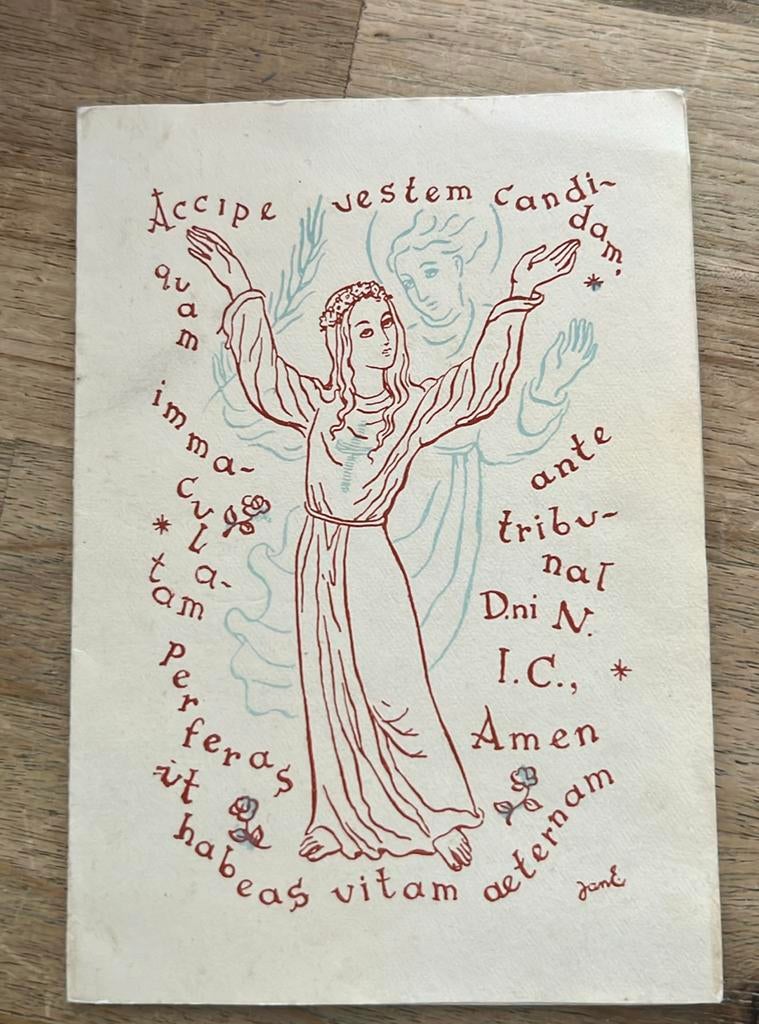 Accipe vestem candi-
dam,
quam
imma-
cula-
tam
perferas
ante
tribu-
nal
D.ni N.
I.C.,
ut habeas vitam aeternam
Amen
JanE